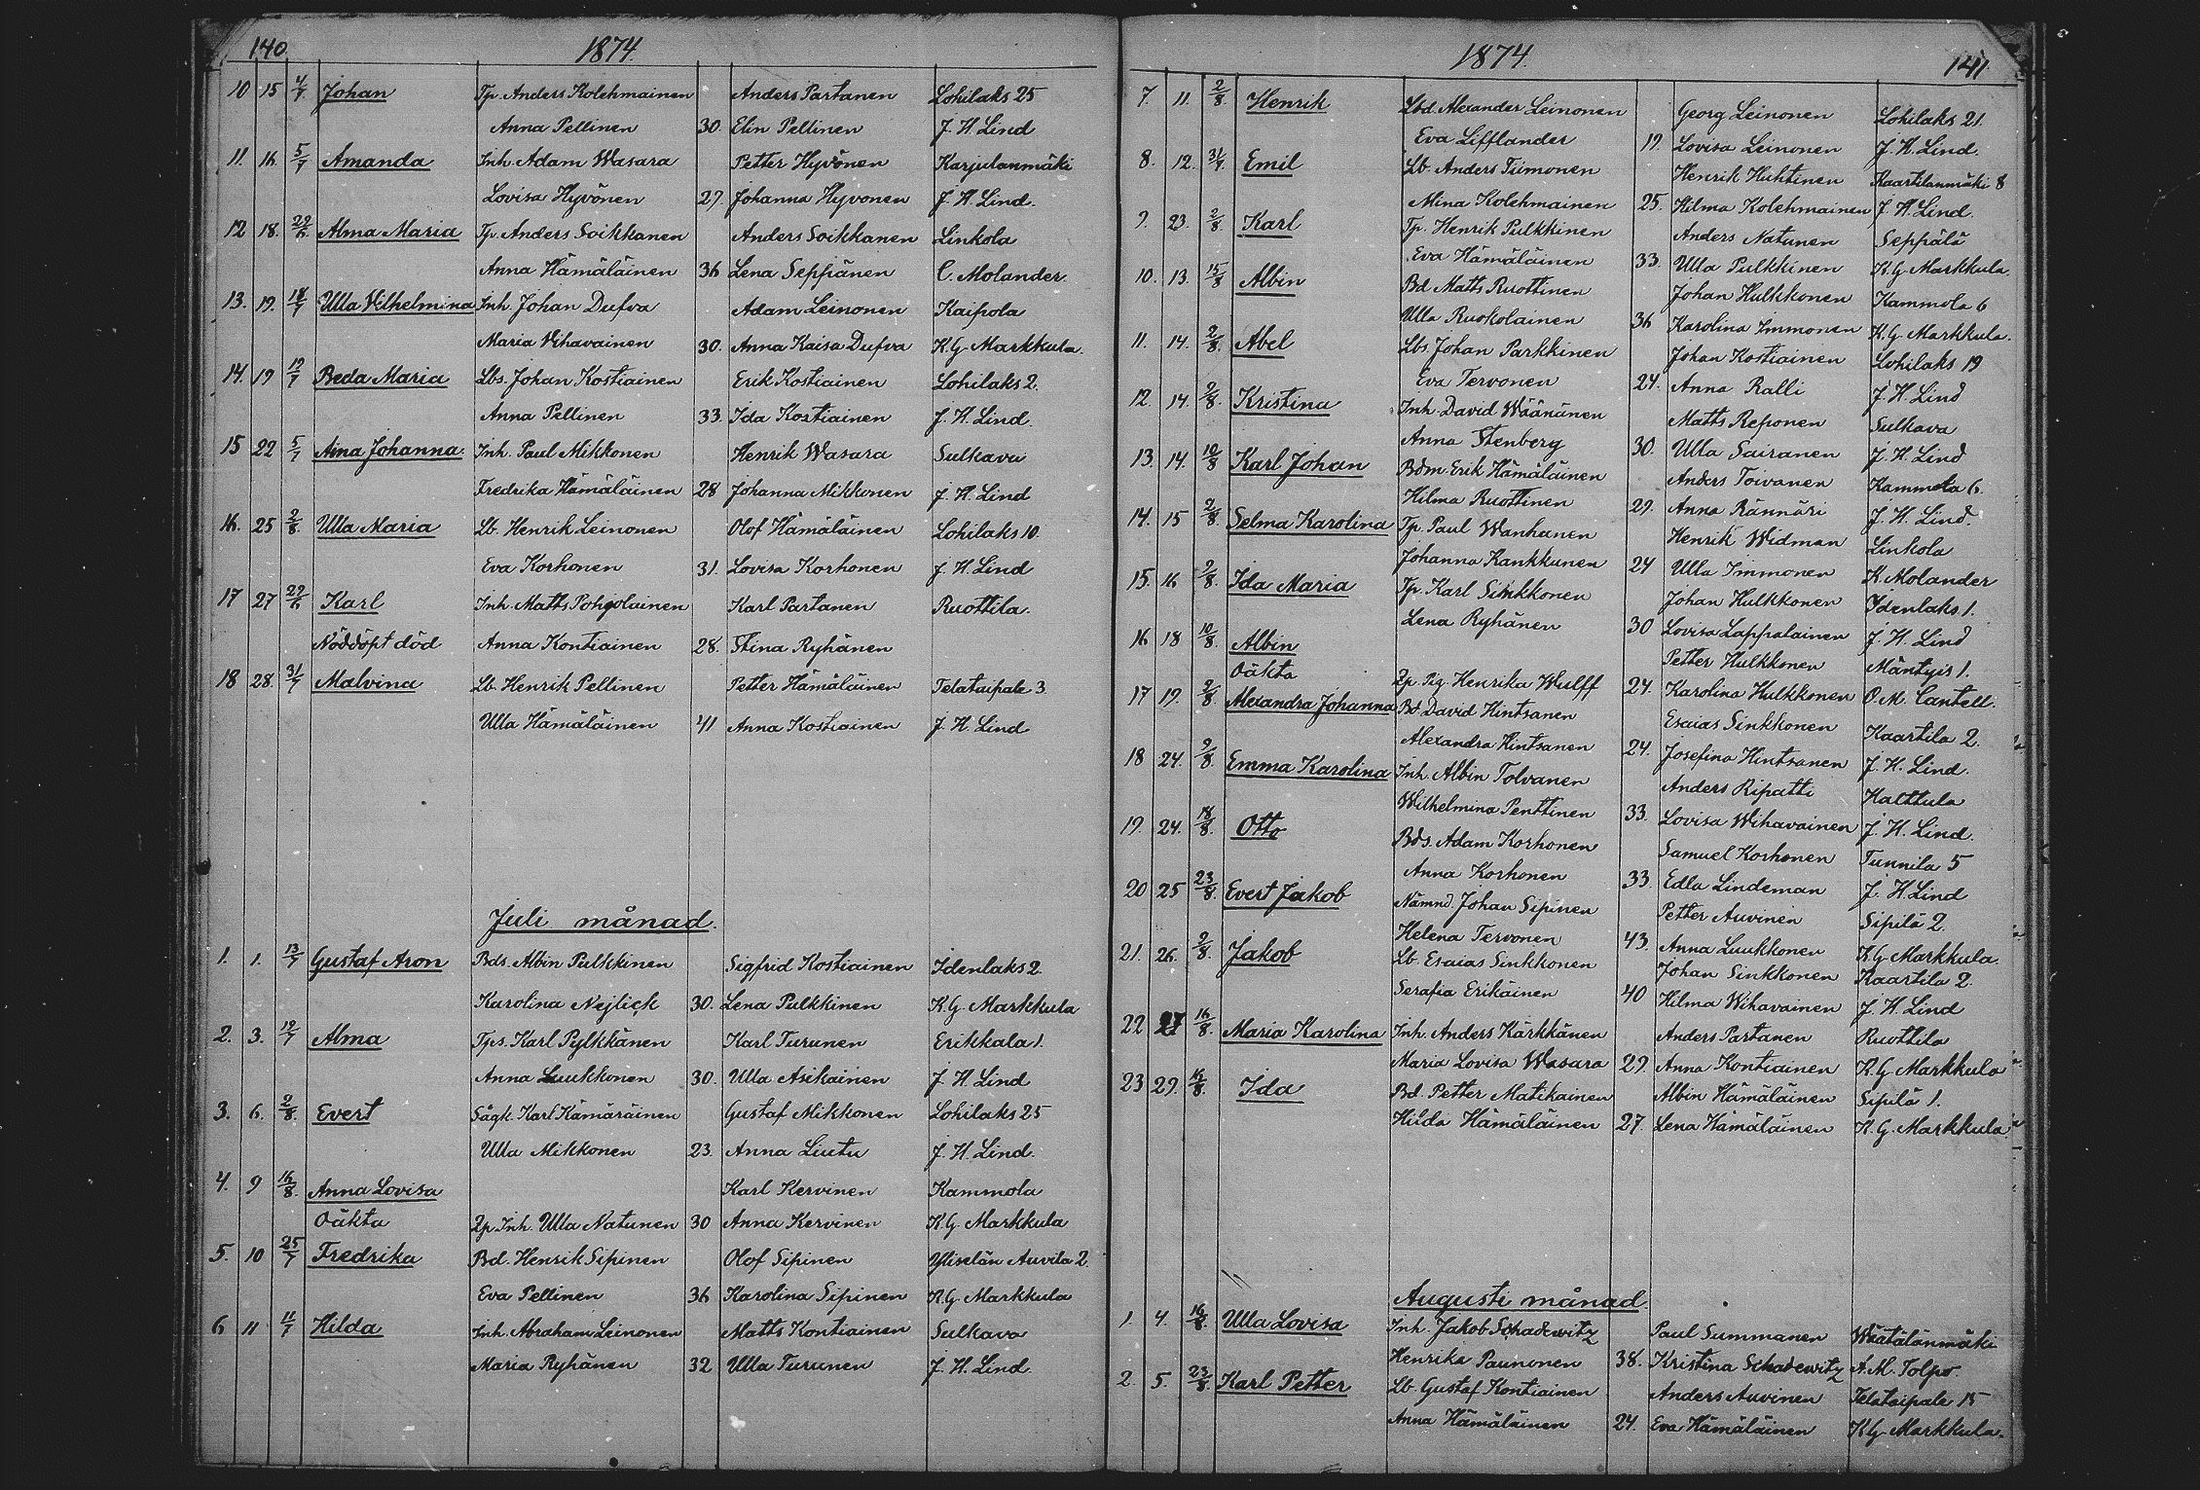 140. 1874.
10 15 4/7 Johan Tp. Anders Kolehmainen Anders Partanen Lohilaks 25
Anna Pellinen 30. Elin Pellinen J. H. Lind
11. 16. 5/7 Amanda Inh. Adam Wasara Petter Hyvönen Karjulanmäki
Lovisa Hyvönen 27. Johanna Hyvönen J. H. Lind.
12 18. 29/6 Alma Maria Tp. Anders Soikkanen Anders Soikkanen Linkola
Anna Hämäläinen 36 Lena Seppänen C. Molander.
13. 19. 18/7 Ulla Vilhelmina Inh. Johan Dufva Adam Leinonen Kaipola
Maria Vihavainen 30. Anna Kaisa Dufva K. G. Markkula.
14. 19 19/7 Beda Maria Lbs. Johan Kostiainen Erik Kostiainen Lohilaks 2.
Anna Pellinen 33. Ida Kostiainen J. H. Lind.
15 22 5/7 Aina Johanna. Inh. Paul Mikkonen Henrik Wasara Sulkava
Fredrika Hämäläinen 28 Johanna Mikkonen J. H. Lind
16. 25 2/8 Ulla Maria Lb. Henrik Leinonen Olof Hämäläinen Lohilaks 10.
Eva Korhonen 31. Lovisa Korhonen J. H. Lind
17 27 29/6 Karl Inh. Matts Pohjolainen Karl Partanen Ruottila.
Nöddöpt död Anna Kontiainen 28. Stina Ryhänen
18 28. 31/7 Malvina Lb. Henrik Pellinen Petter Hämäläinen Telataipale 3
Ulla Hämäläinen 41 Anna Kostiainen J. H. Lind
Juli månad.
1. 1. 13/7 Gustaf Aron Bds. Albin Pulkkinen Sigfrid Kostiainen Idenlaks 2
Karolina Nejlick 30. Lena Pulkkinen K. G. Markkula
2. 3. 12/7 Alma Tps. Karl Pylkkänen Karl Turunen Erikkala 1.
Anna Luukkonen 30. Ulla Asikainen J. H. Lind
3. 6. 2/8. Evert Sågk. Karl Kämäräinen Gustaf Mikkonen Lohilaks 25
Ulla Mikkonen 23. Anna Liutu J. H. Lind.
4. 9 16/8. Anna Lovisa Karl Kervinen Kammola
Oäkta Qp. Inh. Ulla Natunen 30 Anna Kervinen K. G. Markkula
5. 10 25/7 Fredrika Bd. Henrik Sipinen Olof Sipinen Yliselän Auvila 2.
Eva Pellinen 36 Karolina Sipinen K. G. Markkula
6 11 11/7 Hilda Inh. Abraham Leinonen Matts Kontiainen Sulkava
Maria Ryhänen 32 Ulla Turunen J. H. Lind.
1874. 141
7. 11. 2/8. Henrik Lbd Alexander Leinonen Georg Leinonen Lohilaks 21.
Eva Lifflander 19. Lovisa Leinonen J. H. Lind.
8. 12. 31/7 Emil Lb. Anders Tiimonen Henrik Huhtinen Kaartilanmäki 8
Mina Kolehmainen 25. Hilma Kolehmainen J. H. Lind.
9. 23. 2/8. Karl Tp. Henrik Pulkkinen Anders Natunen Seppälä
Eva Hämäläinen 33. Ulla Pulkkinen K. G. Markkula.
10. 13. 15/8 Albin Bd. Matts Ruottinen Johan Hulkkonen Kammola 6
Ulla Ruokolainen 36 Karolina Immonen K. G. Markkula.
11. 14. 2/8. Abel Lbs. Johan Parkkinen Johan Kostiainen Lohilaks 19
Eva Tervonen 24. Anna Ralli J. H. Lind
12 14. 2/8. Kristina Inh. David Wäänänen Matts Reponen Sulkava
Anna Stenberg 30. Ulla Sairanen J. H. Lind
13. 14. 10/8 Karl Johan Bdm. Erik Hämäläinen Anders Toivanen Kammola 6.
Hilma Ruottinen 29. Anna Rännäri J. H. Lind.
14. 15 2/8. Selma Karolina Tp. Paul Wanhanen Henrik Widman Linkola
Johanna Kankkunen 24 Ulla Immonen K. Molander
15. 16 2/8. Ida Maria Tp. Karl Sinkkonen Johan Hulkkonen Idenlaks 1.
Lena Ryhänen 30 Lovisa Lappalainen J. H. Lind
16 18 10/8. Albin Petter Hulkkonen Mäntyis 1.
Oäkta Qp. Pig. Henrika Wulff 24. Karolina Hulkkonen O. M. Cantell.
17 19. 2/8. Alexandra Johanna Bd. David Hintsanen Esaias Sinkkonen Kaartila 2.
Alexandra Hintsanen 24. Josefina Hintsanen J. H. Lind.
18 24. 9/8. Emma Karolina Inh. Albin Tolvanen Anders Ripatti Kalttula
Wilhelmina Penttinen 33. Lovisa Wihavainen J. H. Lind.
19. 24. 18/8. Otto Bds. Adam Korhonen Samuel Korhonen Tunnila 5
Anna Korhonen 33. Edla Lindeman J. H. Lind
20 25 23/8. Evert Jakob Nämnd. Johan Sipinen Petter Auvinen Sipilä 2.
Helena Tervonen 43. Anna Luukkonen K. G. Markkula.
21. 26. 2/8. Jakob Lb. Esaias Sinkkonen Johan Sinkkonen Kaartila 2.
Serafia Erikäinen 40 Hilma Wihavainen J. H. Lind
22 27 16/8. Maria Karolina Inh. Anders Kärkkänen Anders Partanen Ruottila
Maria Lovisa Wasara 29. Anna Kontiainen K. G. Markkula
23 29. 16/8. Ida Bd. Petter Matikainen Albin Hämäläinen Sipilä 1.
Hilda Hämäläinen 27. Lena Hämäläinen K. G. Markkula.
Augusti månad.
1 4. 16/8. Ulla Lovisa Inh. Jakob Schadewitz Paul Summanen Wäätälänmäki
Henrika Paunonen 38. Kristina Schadewitz A. M. Tolpo.
2. 5. 23/8. Karl Petter Lb. Gustaf Kontiainen Anders Auvinen Telataipale 15
Anna Hämäläinen 24. Eva Hämäläinen K. G. Markkula.